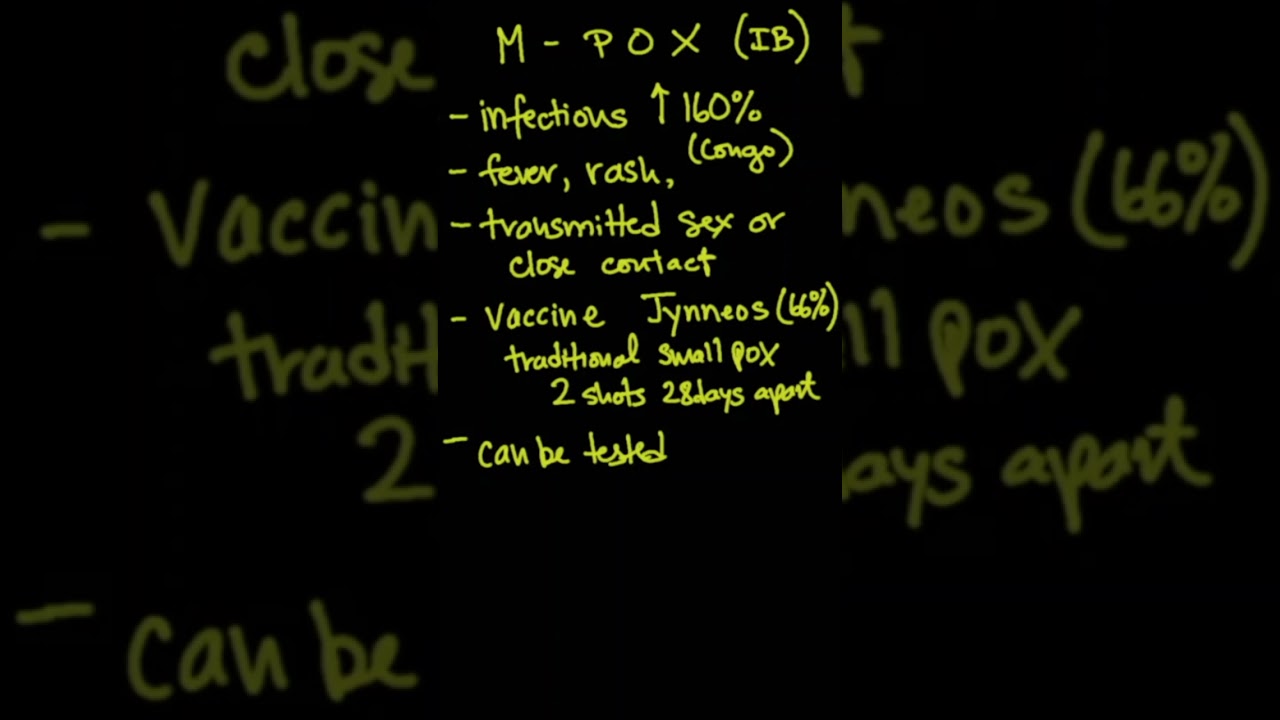 M - POX (IB)
- infections ↑ 160%
(Congo)
- fever, rash,
- transmitted sex or
close contact
- Vaccine Jynneos (66%)
traditional small pox
2 shots 28days apart
- can be tested